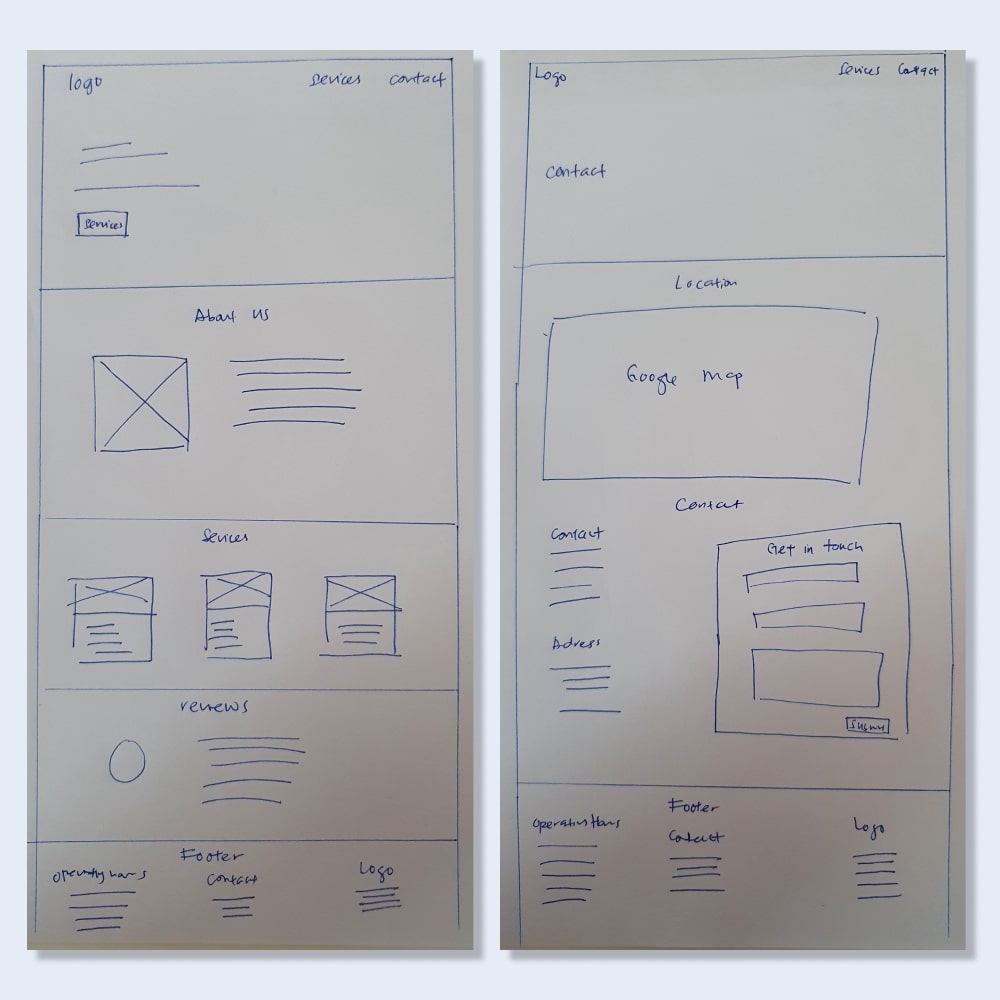 logo Sevices contact
Services
About us
Sevices
reviews
Footer
Contact
Logo
Logo Sevices Contact
Contact
Location
Google map
Contact
Contact
Get in touch
Adress
Submit
Footer
Contact
Logo